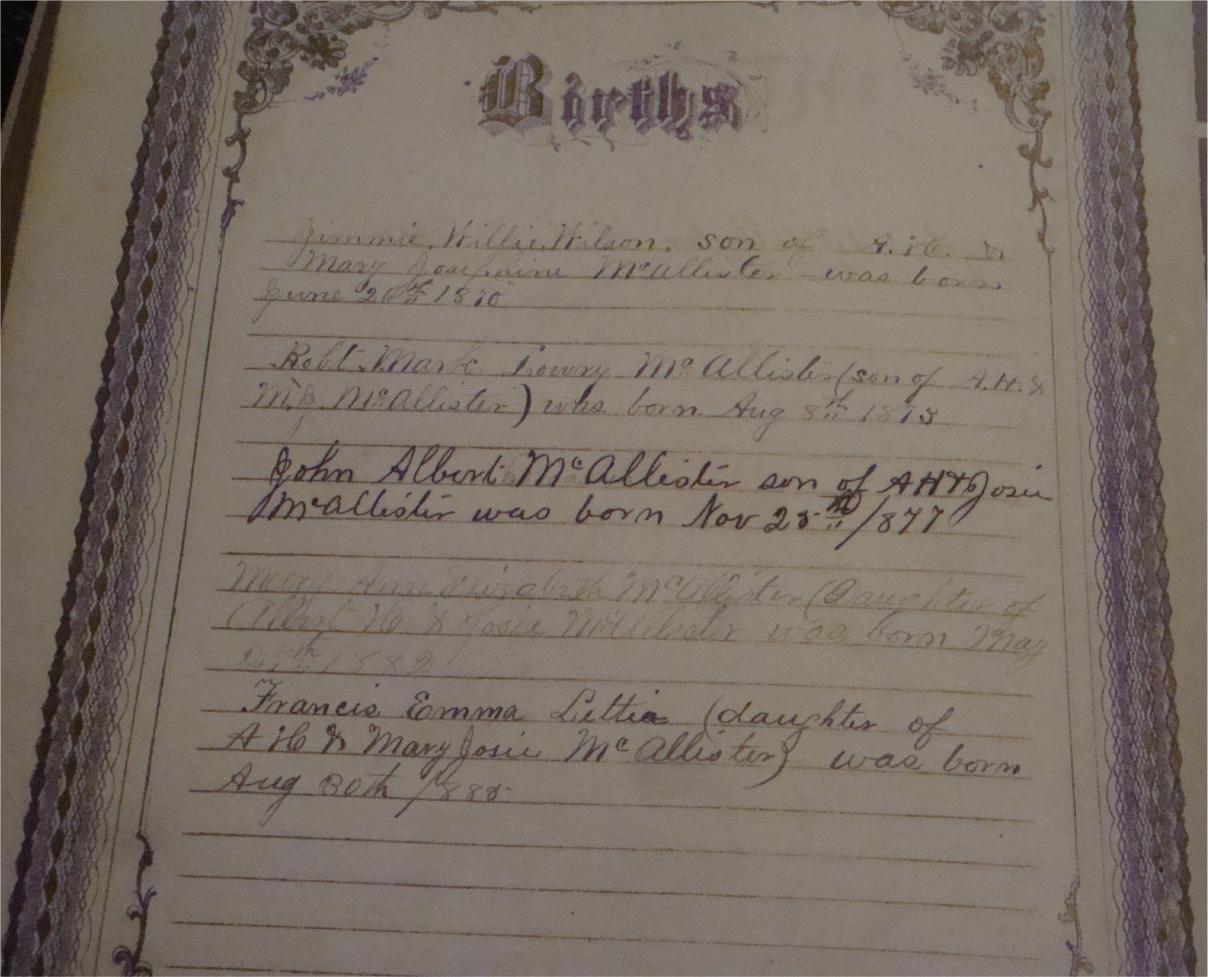 Births
Jimmie, Willie, Wilson, son of A. H. &
Mary Josephine McAllister was born
June 20th 1870
Robt. Mark Lowry McAllister (son of A. H. &
M. J. McAllister) was born Aug 8th 1873
John Albert McAllister son of A H & Josie
McAllister was born Nov 25th 1877
Mary Ann Elizabeth McAllister (Daughter of
Albert H. & Josie McAllister was born May
1882
Francis Emma Lettia (daughter of
A H & Mary Josie McAllister) was born
Aug 30th 1885